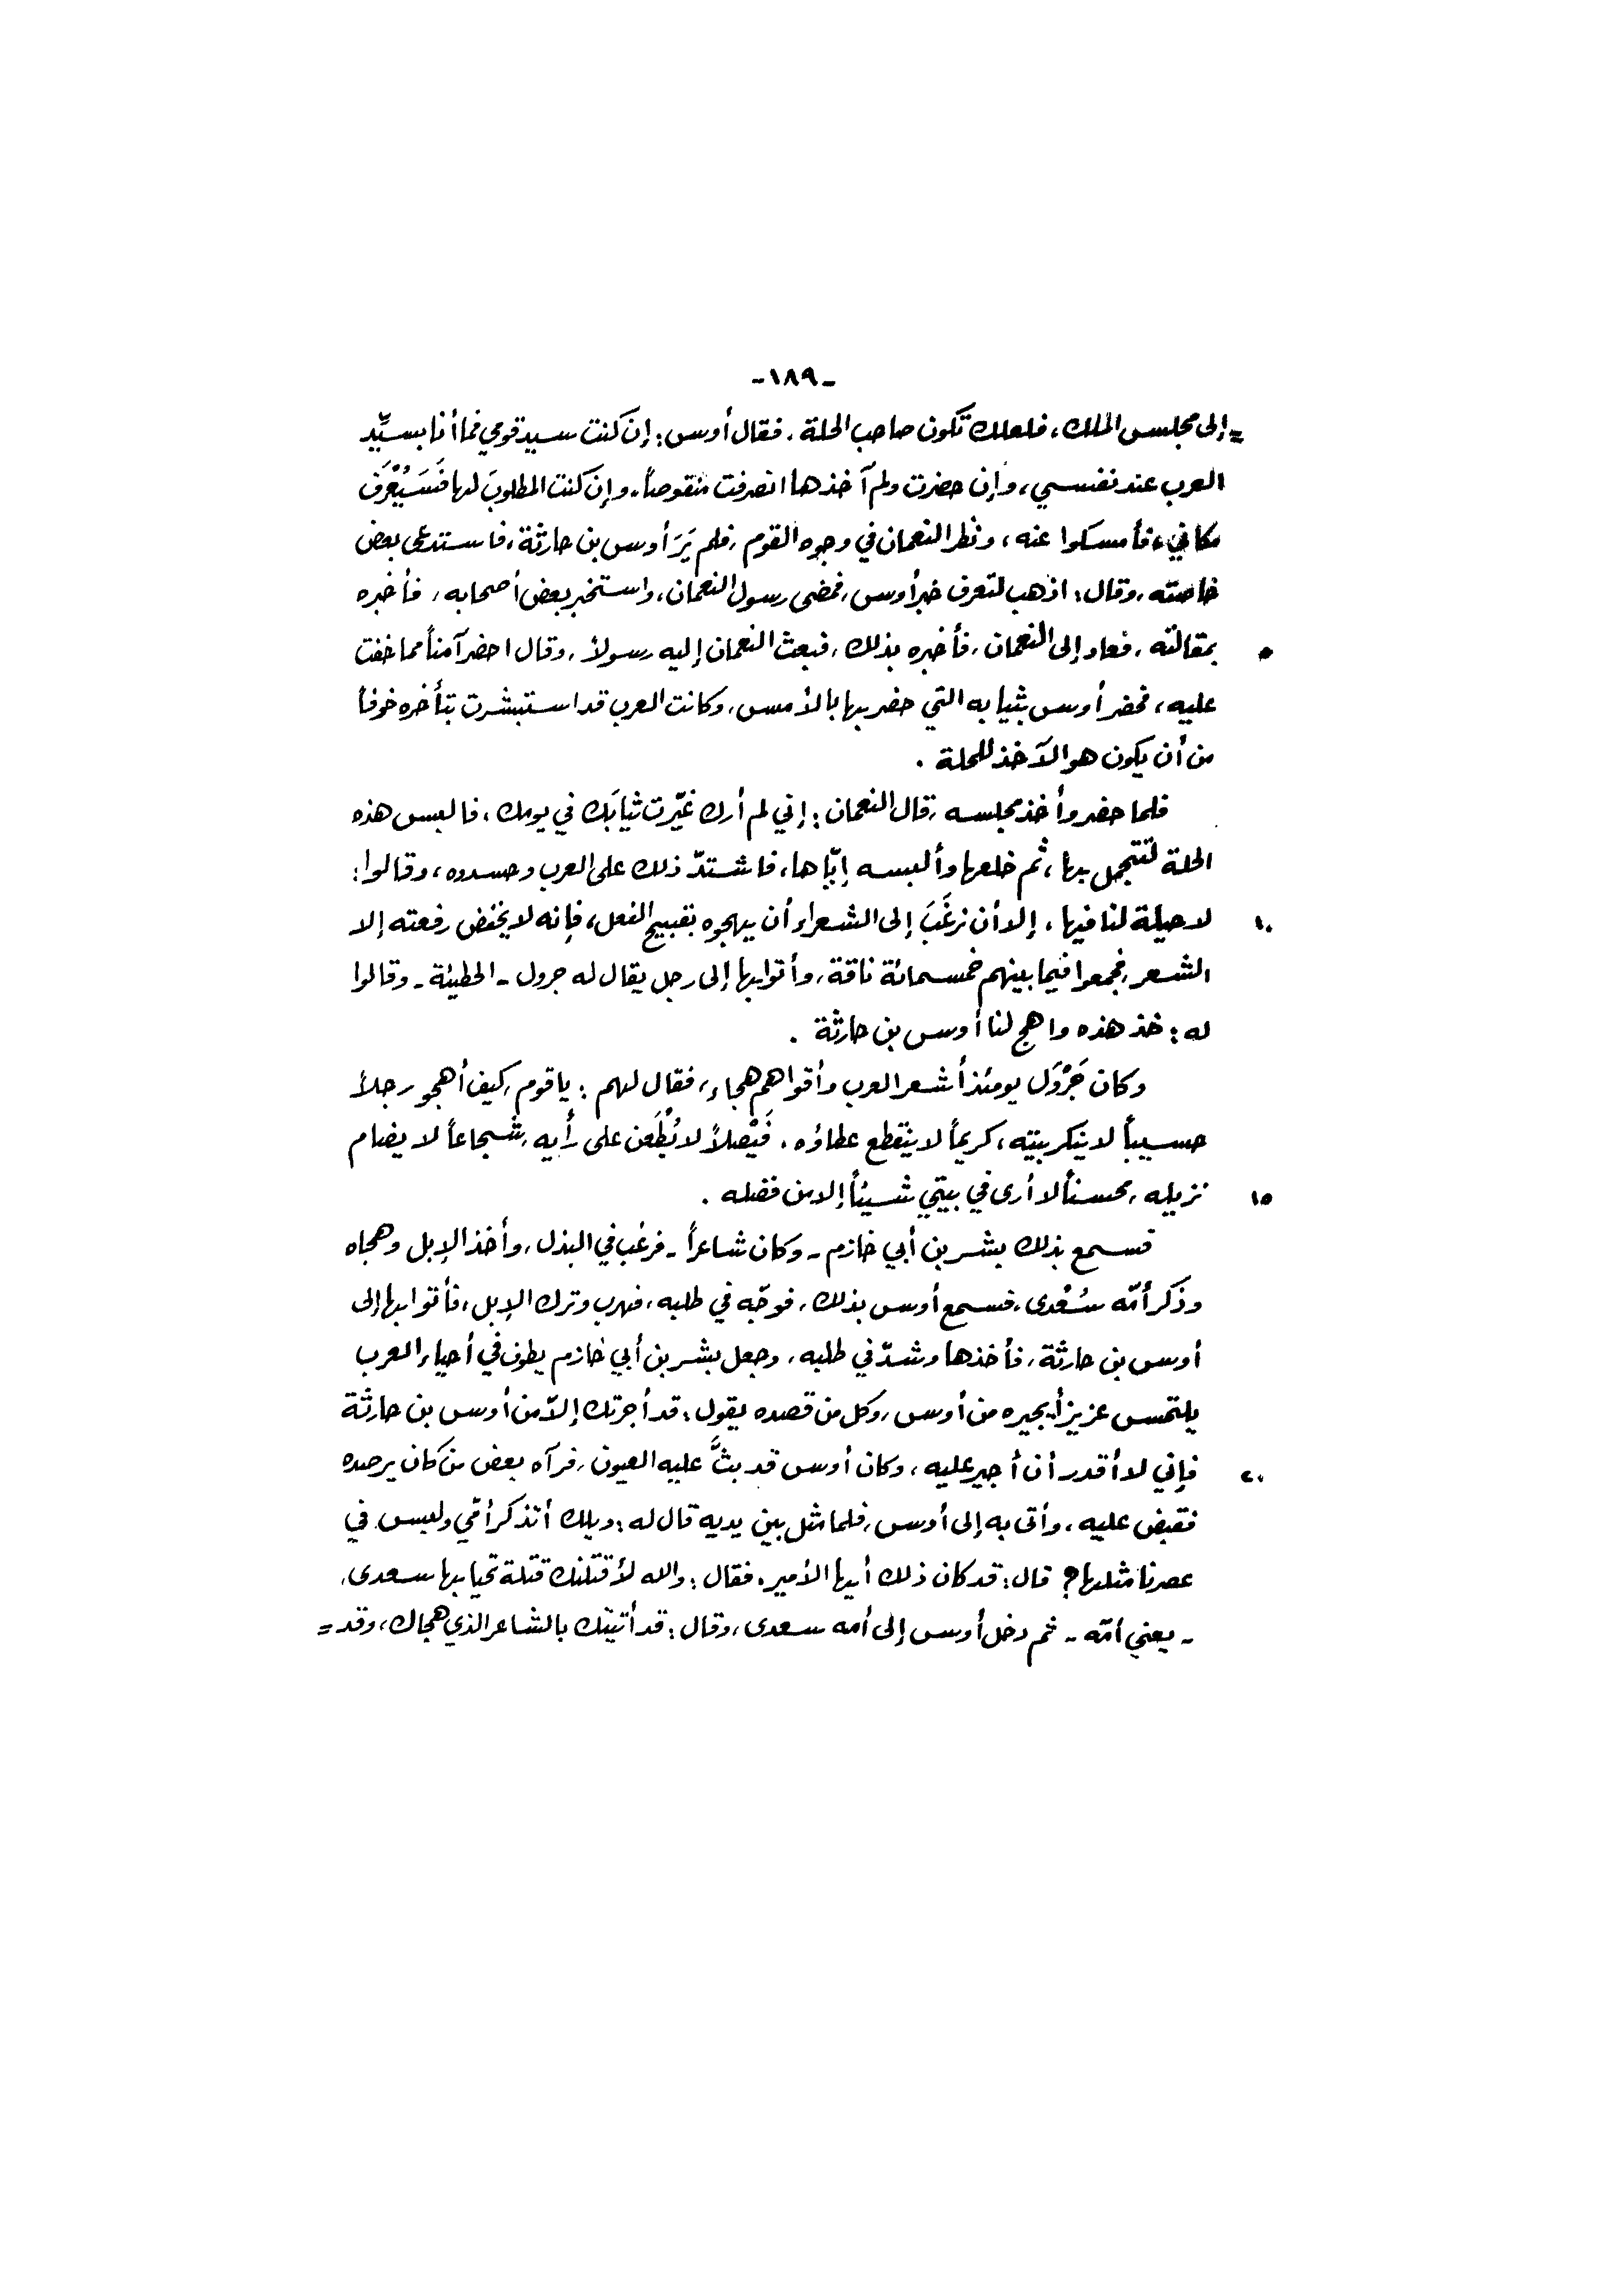 -١٨٩-
= إلى مجلس الملك، فلعلك تكون صاحب الحلة. فقال أوس: إن كنت سيد قومي فما أنا بسيِّد
العرب عند نفسي، وإن حضرت ولم آخذها انصرفت منقوصاً، وإن كنت المطلوبَ لها فَسَيُعْرَف
مكاني، فأمسكوا عنه، ونظر النعمان في وجوه القوم، فلم يَرَ أوس بن حارثة، فاستدعى بعض
خاصته، وقال: اذهب لتعرف خبر أوس، فمضى رسول النعمان، واستخبر بعض أصحابه، فأخبره
٥ بمقالته، فعاد إلى النعمان، فأخبره بذلك، فبعث النعمان إليه رسولاً، وقال احضر آمناً مما خفت
عليه، فحضر أوس بثيابه التي حضر بها بالأمس، وكانت العرب قد استبشرت بتأخره خوفاً
من أن يكون هو الآخذ للحلة.
فلما حضر وأخذ مجلسه، قال النعمان: إني لم أرك غيّرت ثيابَك في يومك، فالبس هذه
الحلة لتتجمل بها، ثم خلعها وألبسه إيّاها، فاشتدّ ذلك على العرب وحسدوه، وقالوا:
١٠ لا حيلة لنا فيها، إلا أن نرغَبَ إلى الشعراء أن يهجوه بقبيح الفعل، فإنه لا يخفض رفعته إلا
الشعر، فجمعوا فيما بينهم خمسمائة ناقة، وأتوا بها إلى رجل يقال له جرول - الحطيئة - وقالوا
له: خذ هذه واهج لنا أوس بن حارثة.
وكان جَرْوَل يومئذ أشعر العرب وأقواهم هجاء، فقال لهم: يا قوم، كيف أهجو رجلاً
حسيباً لا ينكر بيته، كريماً لا ينقطع عطاؤه، فَيْصلاً لا يُطْعَن على رأيه، شجاعاً لا يضام
١٥ نزيله، محسناً لا أرى في بيتي شيئاً إلا من فضله.
فسمع بذلك بشر بن أبي خازم - وكان شاعراً - فرغب في البذل، وأخذ الإبل وهجاه
وذكَر أمّه سُعْدى، فسمع أوس بذلك، فوجّه في طلبه، فهرب وترك الإبل، فأتوا بها إلى
أوس بن حارثة، فأخذها وشدّ في طلبه، وجعل بشر بن أبي خازم يطوف في أحياء العرب
يلتمس عزيزاً يجيره من أوس، وكل من قصده يقول: قد أجرتك إلاّ من أوس بن حارثة
٢٠ فإني لا أقدر أن أجير عليه، وكان أوس قد بثَّ عليه العيون، فرآه بعض من كان يرصده
فقبض عليه، وأتى به إلى أوس، فلما مثل بين يديه قال له: ويلك أتذكر أمّي وليس في
عصرنا مثلها؟ قال: قد كان ذلك أيها الأمير، فقال: والله لأقتلنك قتلة تحيا بها سعدى،
- يعني أمّه - ثم دخل أوس إلى أمه سعدى، وقال: قد أتيتك بالشاعر الذي هجاك، وقد =